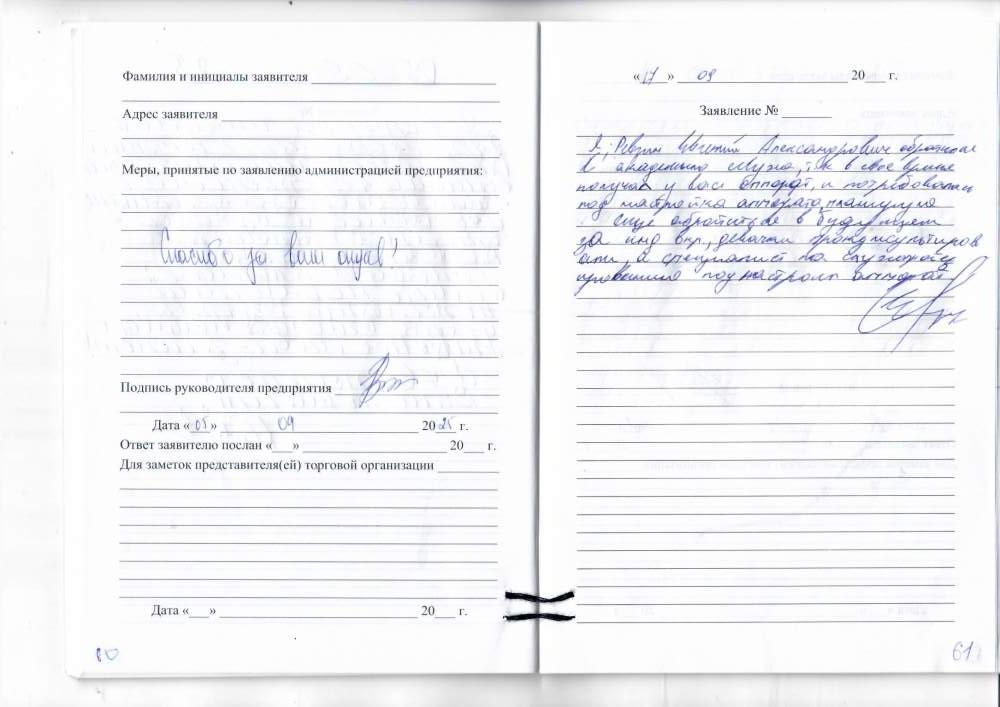 Фамилия и инициалы заявителя
Адрес заявителя
Меры, принятые по заявлению администрацией предприятия:
Спасибо за ваш отзыв!
Подпись руководителя предприятия
Дата «05» 09 2025 г.
Ответ заявителю послан «___» 20___ г.
Для заметок представителя(ей) торговой организации
Дата «___» 20___ г.
«17» 09 20___ г.
Заявление №
Я, Евгений Александрович обратился
в академию слуха, т.к в свое время
получал у вас аппарат, и потребовалась
под настройка аппарата, планирую
еще обратиться в будущем
за инд вкл, девочки проконсультиров
али, а специалист по слухопротез
ированию поднастроил аппарат
61